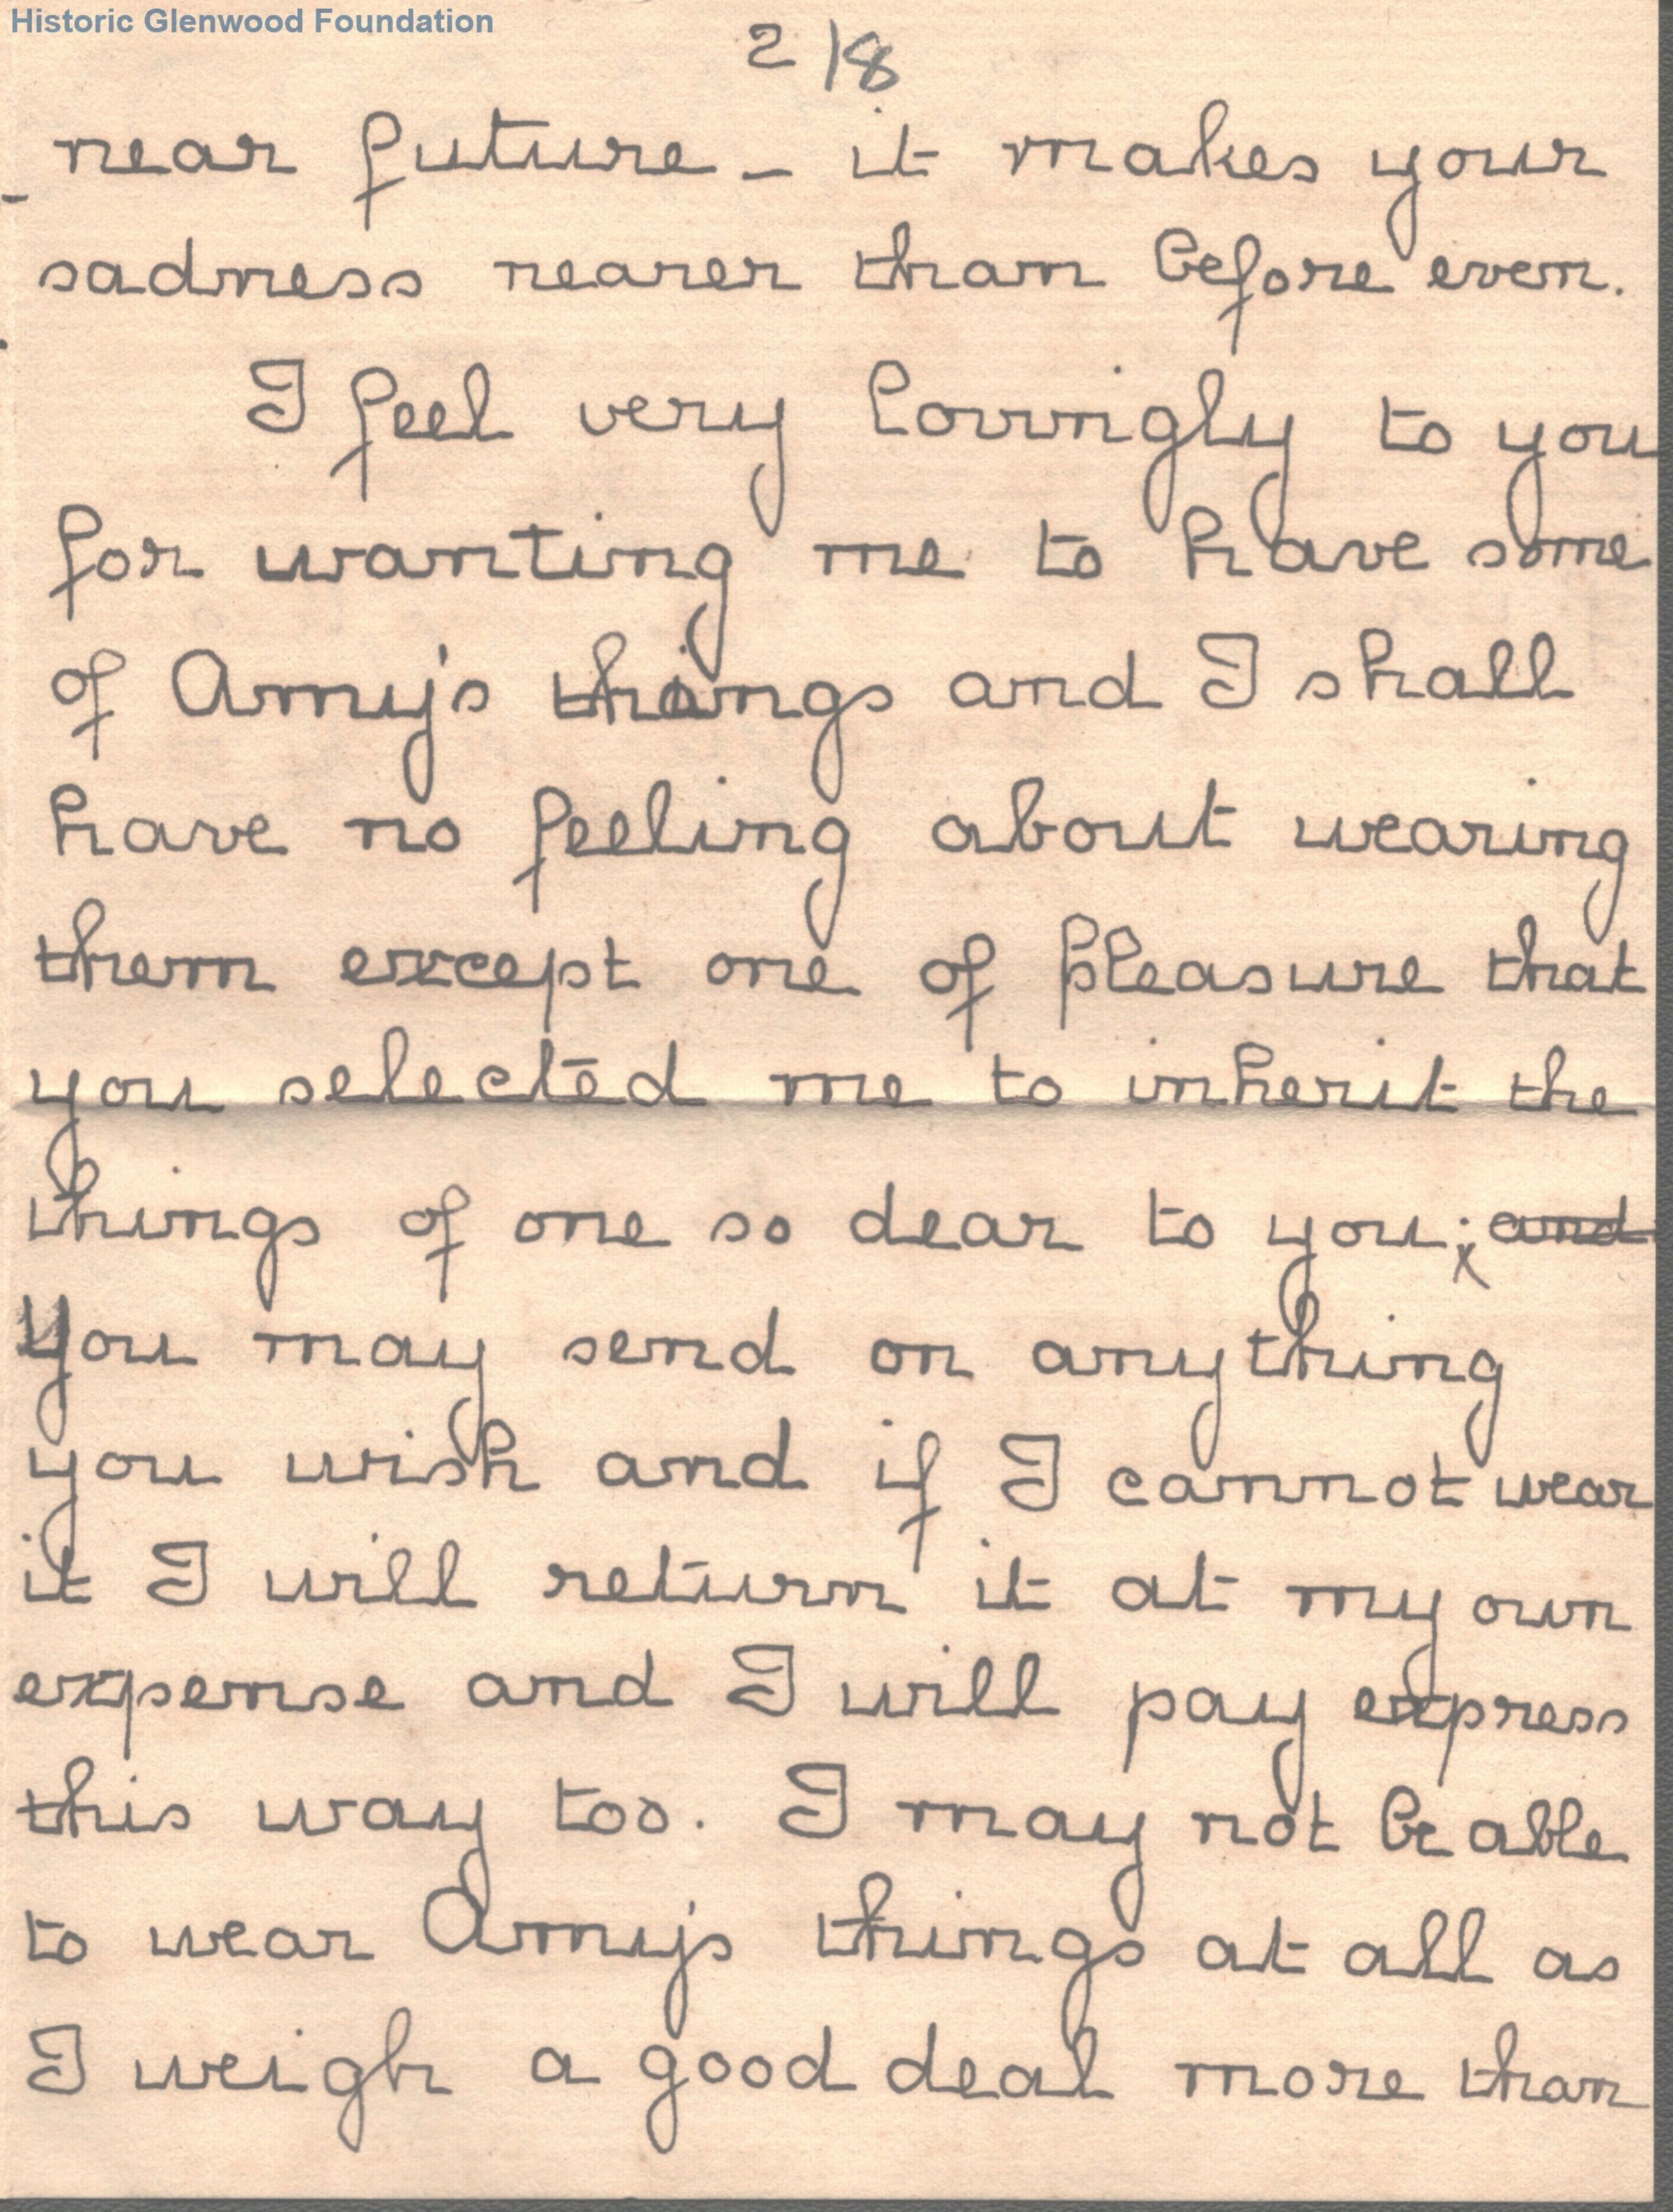 Historic Glenwood Foundation
2/8
near future - it makes your
sadness nearer than before even.
I feel very lovingly to you
for wanting me to have some
of Amy's things and I shall
have no feeling about wearing
them except one of pleasure that
you selected me to inherit the
things of one so dear to you; and
You may send on anything
you wish and if I cannot wear
it I will return it at my own
expense and I will pay express
this way too. I may not be able
to wear Amy's things at all as
I weigh a good deal more than